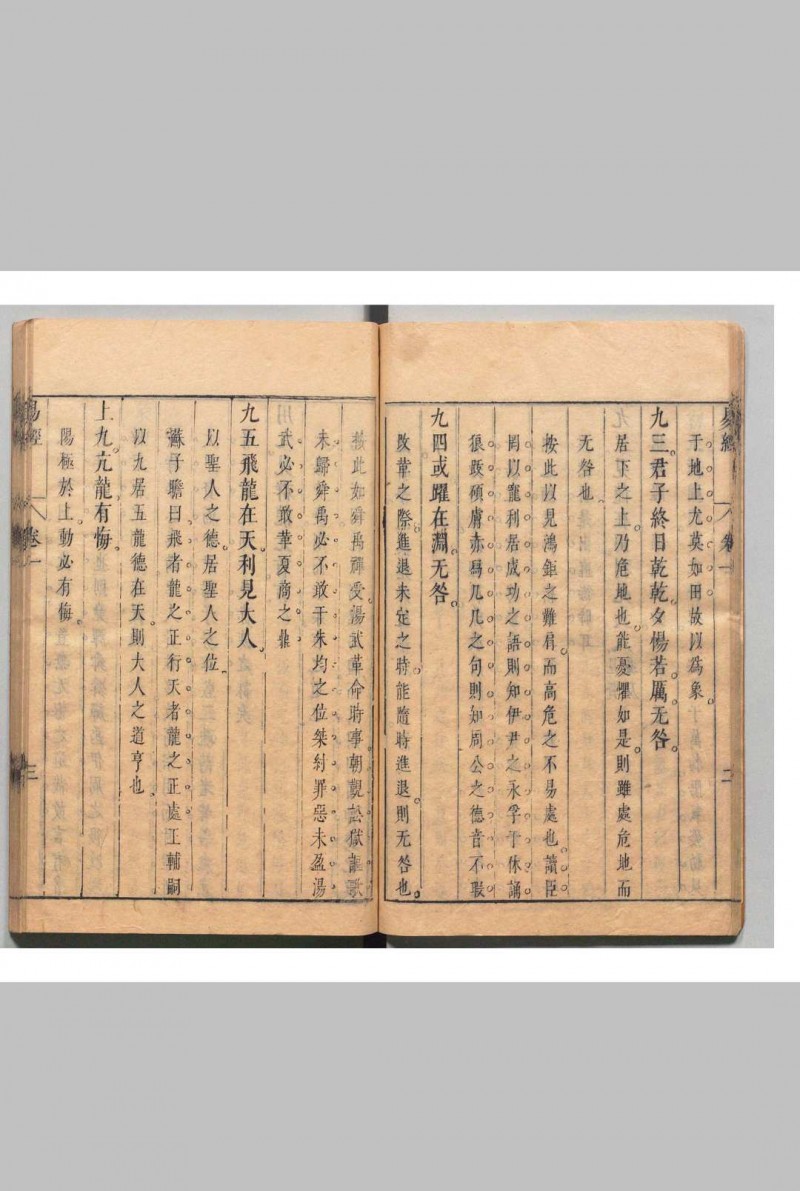 易經 卷一 二
于地上尤莫如田故以為象
九三君子終日乾乾夕惕若厲无咎
居下之上乃危地也能憂懼如是則雖處危地而
无咎也
按此以見鴻鉅之難肩而高危之不易處也讀臣
罔以寵利居成功之語則知伊尹之永孚于休誦
狼跋碩膚赤舄几几之句則知周公之德音不瑕
九四或躍在淵无咎
改革之際進退未定之時能隨時進退則无咎也
按此如舜禹禪受湯武革命時事朝覲訟獄謳歌
未歸舜禹必不敢干朱均之位桀紂罪惡未盈湯
武必不敢革夏商之鼎
九五飛龍在天利見大人
以聖人之德居聖人之位
蘇子瞻曰飛者龍之正行天者龍之正處王輔嗣
以九居五龍德在天則大人之道亨也
上九亢龍有悔
陽極於上動必有悔
易經 卷一 三